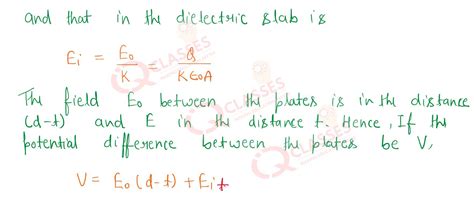 and that in the dielectric slab is
Ei = E0/K = Q/K∈0A
The field E0 between the plates is in the distance
(d-t) and E in the distance t. Hence, If the
potential difference between the plates be V,
V = E0 (d-t) + Eit